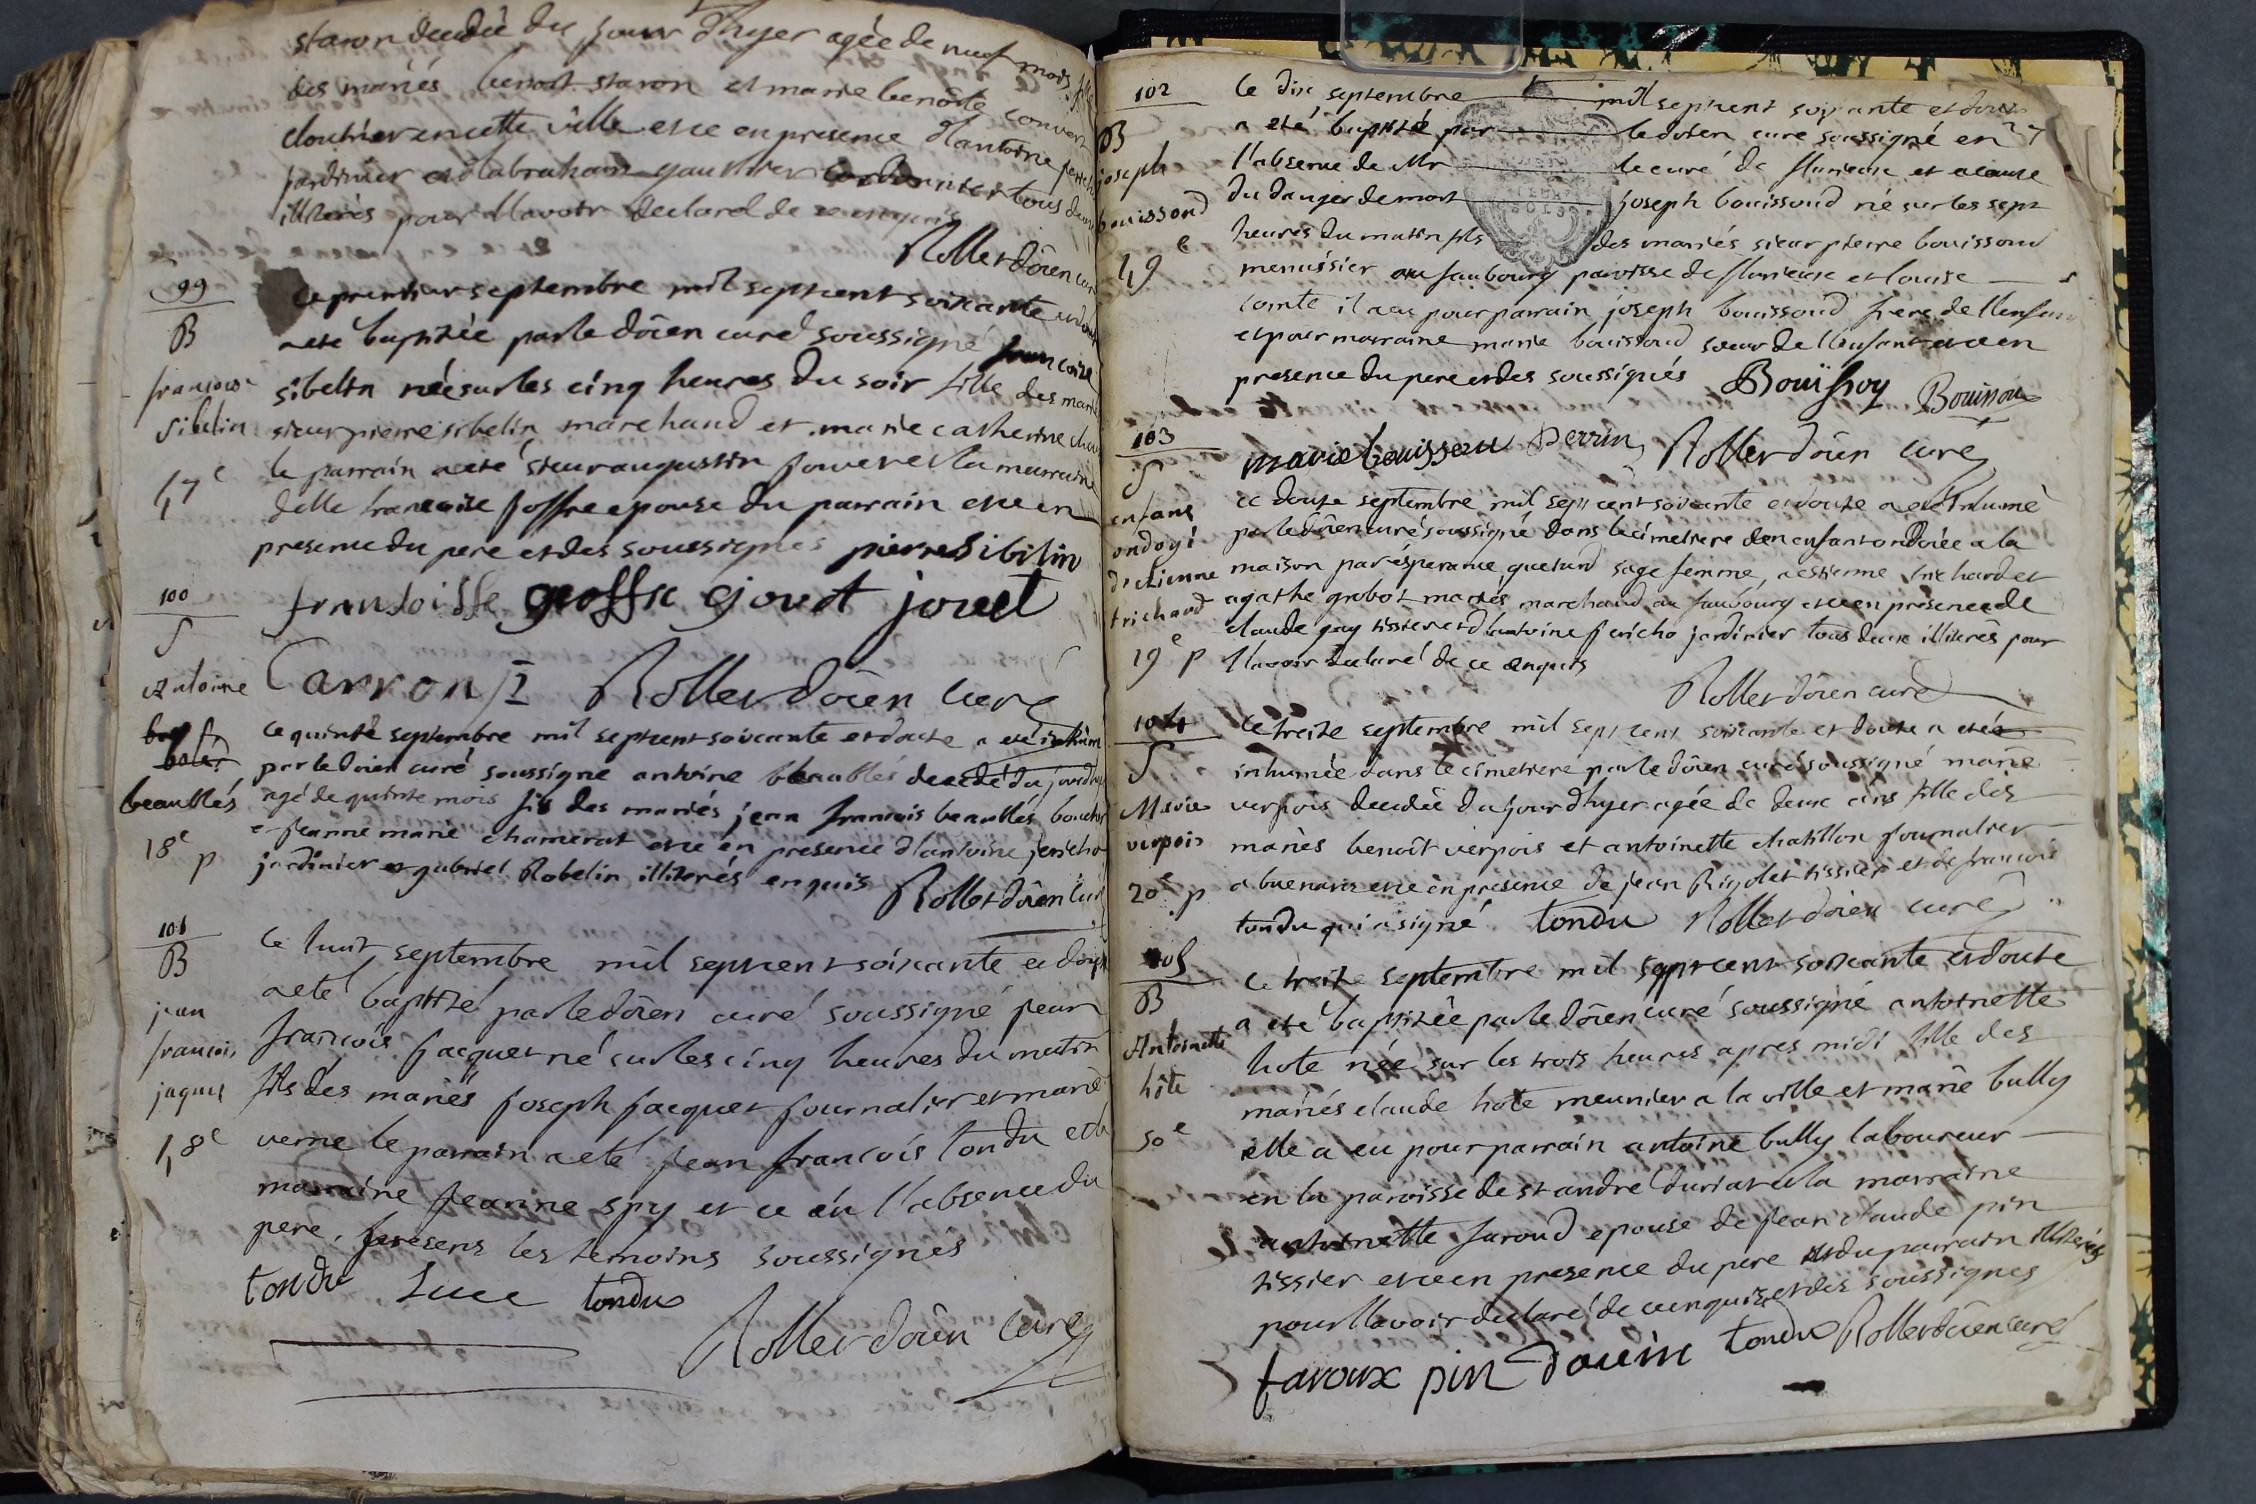 staron decedée du jour d'hyer agée de neuf mois fille
des mariés benoit staron et marie benoite convert
cloutrier en cette ville et ce en presence d'antoine
jardinier et d'abraham gauthier tous deux
illiterés pour l'avoir declaré de ce enquis
Rollet doïen curé
99
B
francoise
sibelin
47e
Ce premier septembre mil sept cent soixante et douze
a eté baptisée par le doïen curé soussigné francoise
sibelin née sur les cinq heures du soir fille des mariés
sieur pierre sibelin marchand et marie catherine
le parrain a eté sieur augustin jouve et la marraine
delle francoise joffre epouse du parrain et ce en
presence du pere et des soussignés pierre Sibilin
fransoisse geoffre ejouvt jouvt
Carron Rollet doïen curé
100
S
Antoine
beaublés
18e p
Ce quinze septembre mil sept cent soixante et douze a eté inhumé
par le doïen curé soussigné antoine beaublés decedé du jour d'hyer
agé de quinze mois fils des mariés jean francois beaublés boucher
et jeanne marie chamerat et ce en presence d'antoine jericho
jardinier et gabriel Robelin illiterés enquis Rollet doïen curé
101
B
jean
francois
jaques
48e
Ce huit septembre mil sept cent soixante et douze
a eté baptizé par le doïen curé soussigné jean
francois jacquet né sur les cinq heures du matin
fils des mariés joseph jacquet journalier et marie
verne le parrain a eté jean francois tondu et la
marraine jeanne spy et ce en l'absence du
pere, presens les temoins soussignés
tondu Luce tondu
Rollet doïen curé
102
B
joseph
bouissond
49e
Ce dix septembre mil sept cent soixante et douze
a eté baptizé par le doïen curé soussigné en
l'absence de Mr le curé de flurieux et a cause
du danger de mort joseph bouissond né sur les sept
heures du matin fils des mariés sieur pierre bouissond
menuisier au faubourg paroisse de flurieux et louise
comte il a eu pour parrain joseph bouissond frere de l'enfant
et pour marraine marie bouissond soeur de l'enfant et ce en
presence du pere et des soussignés Bouissoy Bouisson
marie bouisson Perrin Rollet doïen curé
103
S
enfans
ondoyé
d'etienne
trichard
19e p
Ce douze septembre mil sept cent soixante et douze a eté inhumé
par le doïen curé soussigné dans le cimetiere un enfant ondoiée a la
maison par esperance quetand sage femme, a estienne trichard et
agathe grobot mariés marchand au faubourg et ce en presence de
claude guy tissier et d'antoine jericho jardinier tous deux illiterés pour
l'avoir declaré de ce enquis
Rollet doïen curé
104
S
Marie
verpois
20e p
Ce treize septembre mil sept cent soixante et douze a eté
inhumée dans le cimetiere par le doïen curé soussigné marie
verpois decedée du jour d'hyer agée de deux ans fille des
mariés benoît verpois et antoinette chatillon journalier
a buenans et ce en presence de jean Rigolet tissier et de francois
tondu qui a signé tondu Rollet doïen curé
105
B
Antoinette
hôte
50e
Ce treize septembre mil sept cent soixante et douze
a eté baptizée par le doïen curé soussigné antoinette
hote née sur les trois heures apres midi fille des
mariés claude hote meunier a la ville et marie bully
elle a eu pour parrain antoine bully laboureur
en la paroisse de st andré duriat et la marraine
antoinette faroud epouse de jean claude pin
tissier et ce en presence du pere et du parrain illiterés
pour l'avoir declaré de ce enquis et des soussignés
faroux pin Douin tondu Rollet doïen curé